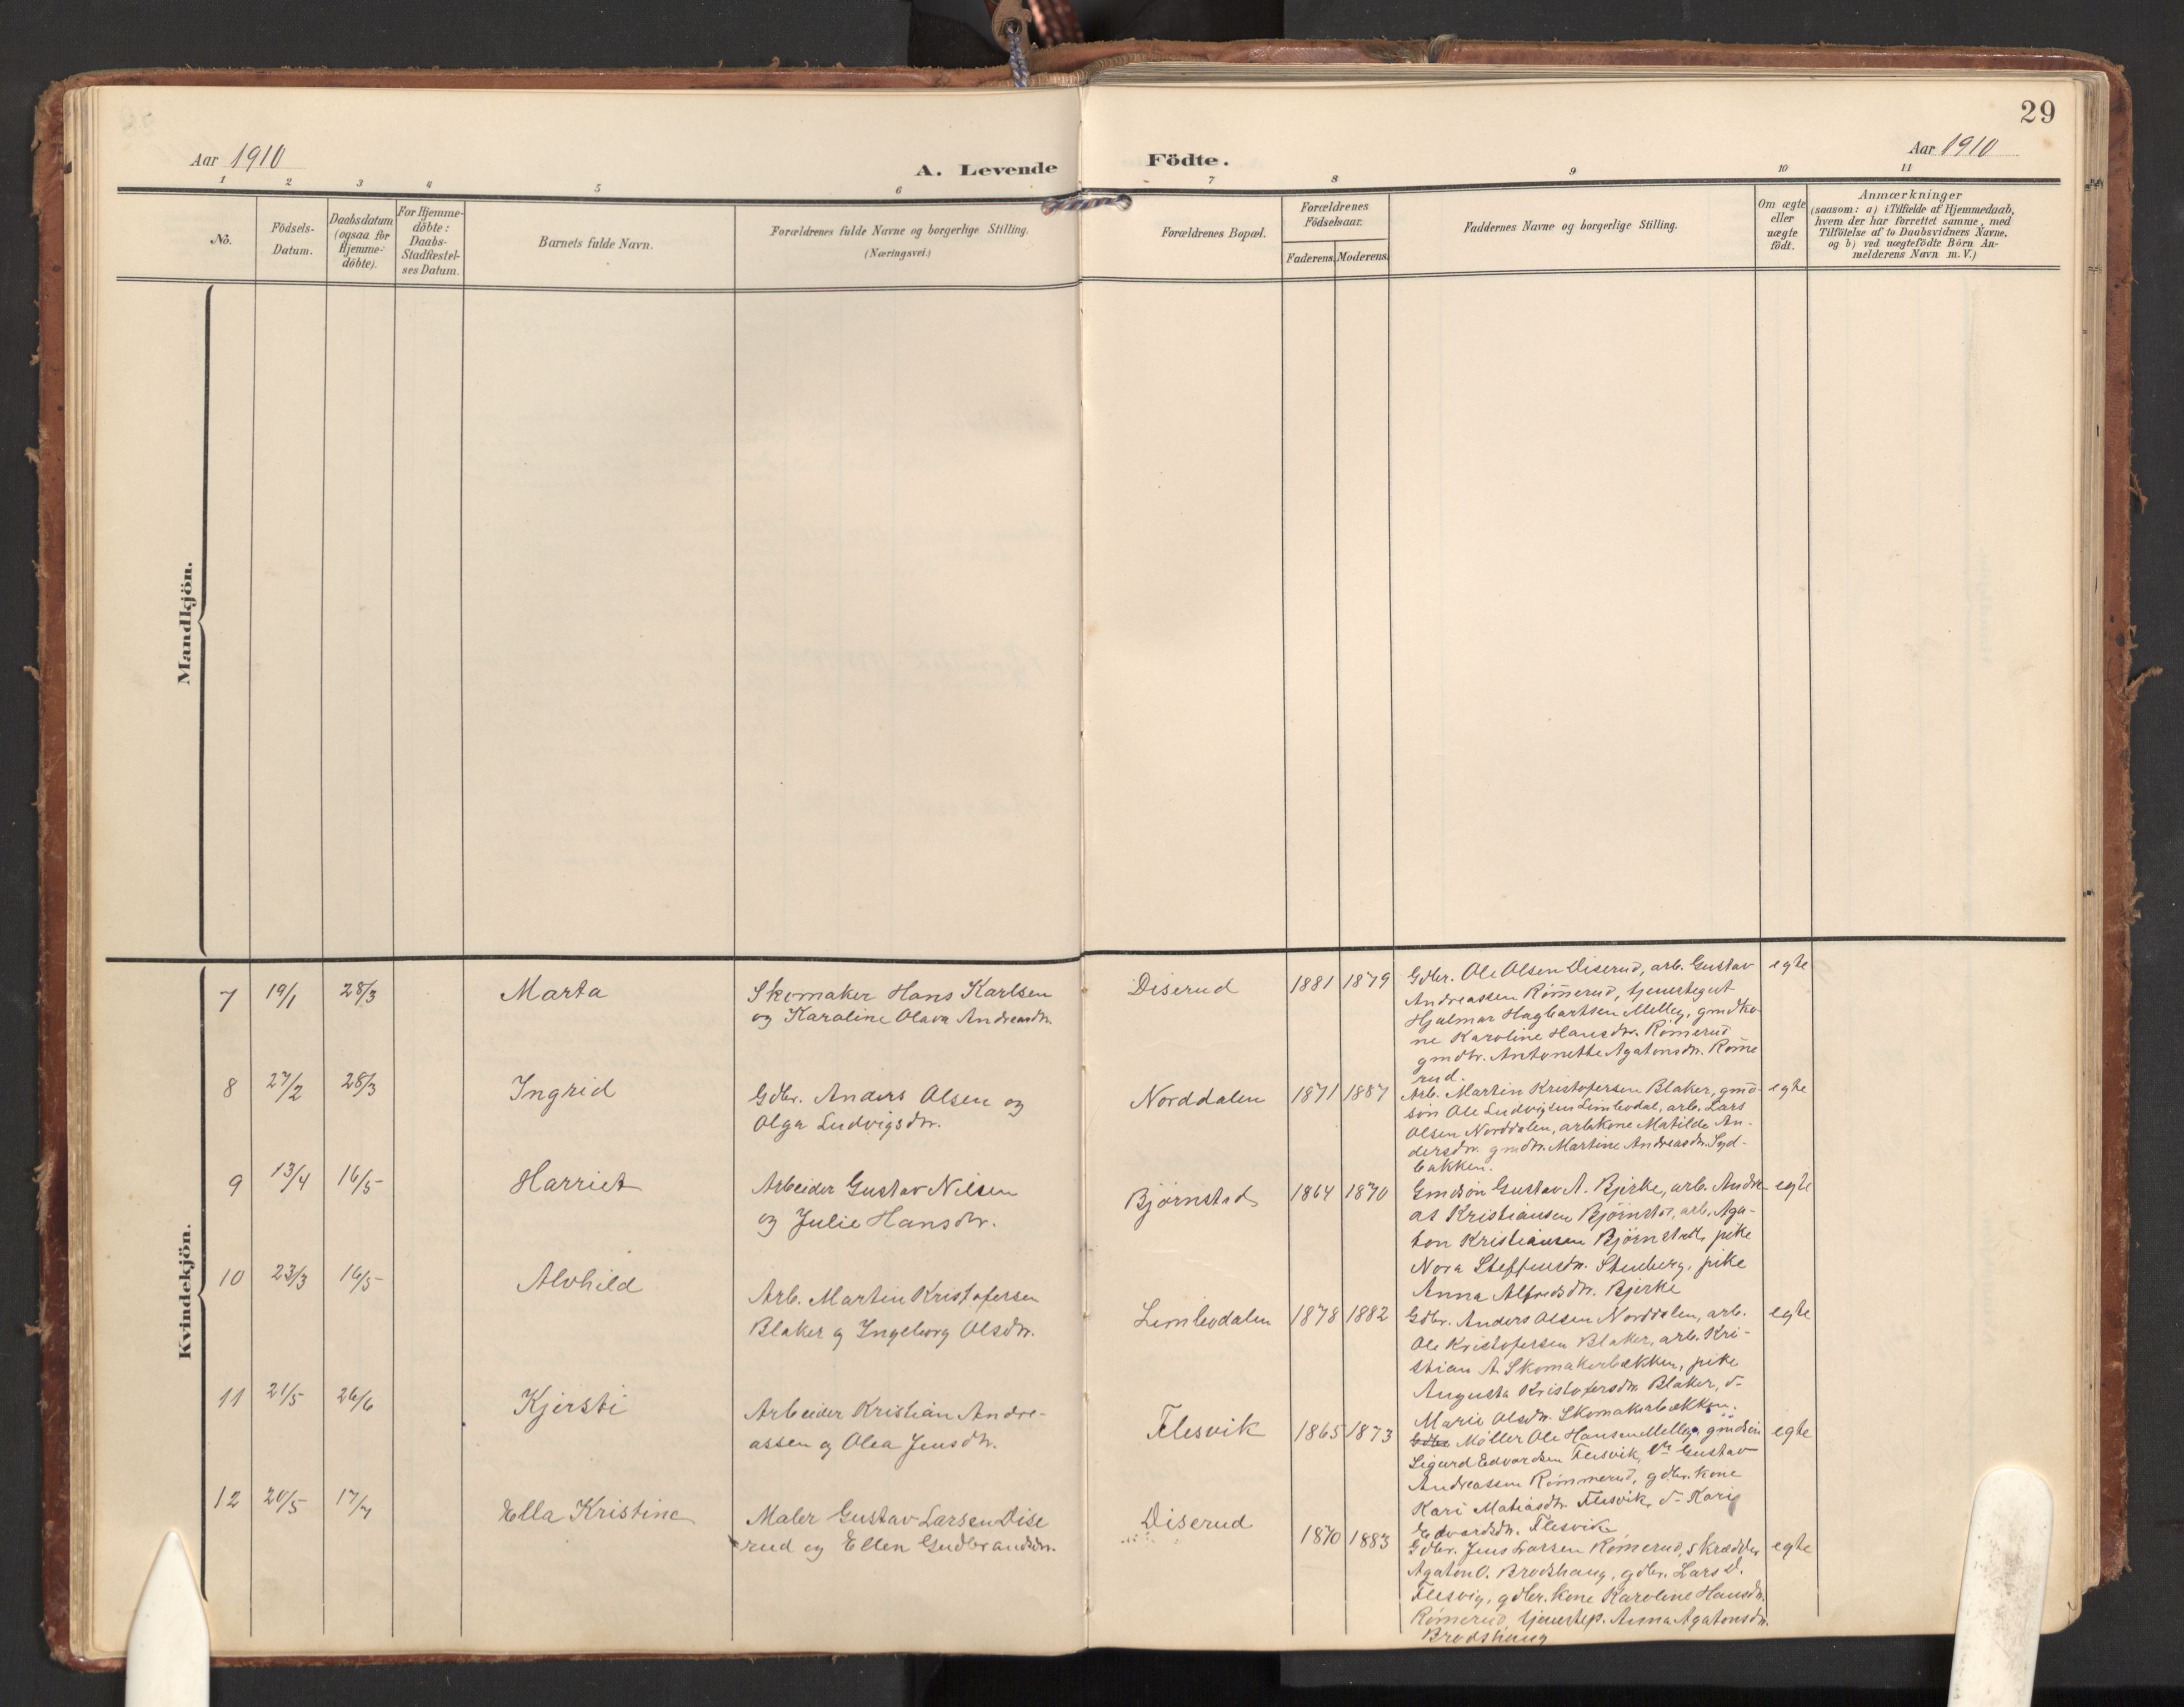 29
Aar 1910
A. Levende Födte.
Aar 1910
1 2 3 4 5 6 7 8 9 10 11
No.
Födsels-
Datum.
Daabsdatum
(ogsaa for
Hjemme-
döbte).
For Hjemme-
döbte:
Daabs-
Stadfæstel-
ses Datum.
Barnets fulde Navn.
Forældrenes fulde Navne og borgerlige Stilling.
(Næringsvei.)
Forældrenes Bopæl.
Forældrenes
Födselsaar.
Faderens. Moderens.
Faddernes Navne og borgerlige Stilling.
Om ægte
eller
uægte
födt.
Anmærkninger
(saasom: a) i Tilfælde af Hjemmedaab,
hvem der har forrettet samme, med
Tilföielse af to Daabsvidners Navne,
og b) ved uægtefödte Börn An-
melderens Navn m. V.)
Mandkjön.
Kvindekjön.
7 19/1 28/3 Marta
Skomaker Hans Karlsen
og Karoline Olava Andreasdtr.
Diserud 1881 1879
Gdbr. Ole Olsen Diserud, arb. Gustav
Andreassen Römerud, tjenestegut
Hjalmar Hagbartsen Melleg, gmdko-
ne Karoline Hansdtr. Römerud
gmdtr. Antonette Agatonsdtr. Röme
rud.
egte
8 27/2 28/3 Ingrid
Gdbr. Anders Olsen og
Olga Ludvigsdtr.
Norddalen 1871 1887
Arb. Martin Kristofersen Blaker, gmd-
sön Ole Ludvigsen Limbodal, arb. Lars
Olsen Norddalen, arb.kone Matilde An-
dersdtr. gmdtr. Martine Andreasdtr. Syd-
bakken.
egte
9 13/4 16/5 Harriet
Arbeider Gustav Nilsen
og Julie Hansdtr.
Björnstad 1864 1870
Gmdsön Gustav A. Bjerke, arb. Andre
as Kristiansen Björnstad, arb. Aga-
ton Kristiansen Björnstad, pike
Nora Steffensdtr. Stenberg, pike
Anna Alfredsdtr. Bjerke
egte
10 23/3 16/5 Alvhild
Arb. Martin Kristofersen
Blaker og Ingeborg Olsdtr.
Limbodalen 1878 1882
Gdbr. Anders Olsen Norddalen, arb.
Ole Kristofersen Blaker, arb. Kri-
stian A. Skomakerbakken, pike
Augusta Kristofersdtr. Blaker, d-
Marie Olsdtr. Skomakerbakken.
egte
11 21/5 26/6 Kjersti
Arbeider Kristian Andre-
assen og Olea Jensdtr.
Flesvik 1865 1873
Gdbr Möller Ole Hansen Melleg, gmdsön
Sigurd Edvardsen Flesvik, Gustav
Andreassen Römmerud, gdbr. kone
Kari Matiasdtr. Flesvik, d- Kari
Edvardsdtr. Flesvik
egte
12 20/5 17/7 Ella Kristine
Maler Gustav Larsen Dise
rud og Ellen Gudbrandsdtr.
Diserud 1870 1883
Gdbr. Jens Larsen Römerud, skrædder
Agaton O. Brodshaug, gdbr. Lars D.
Flesvig, gdbr. kone Karoline Hansdtr.
Römerud, tjenestep. Anna Agatonsdtr.
Brodshaug
egte